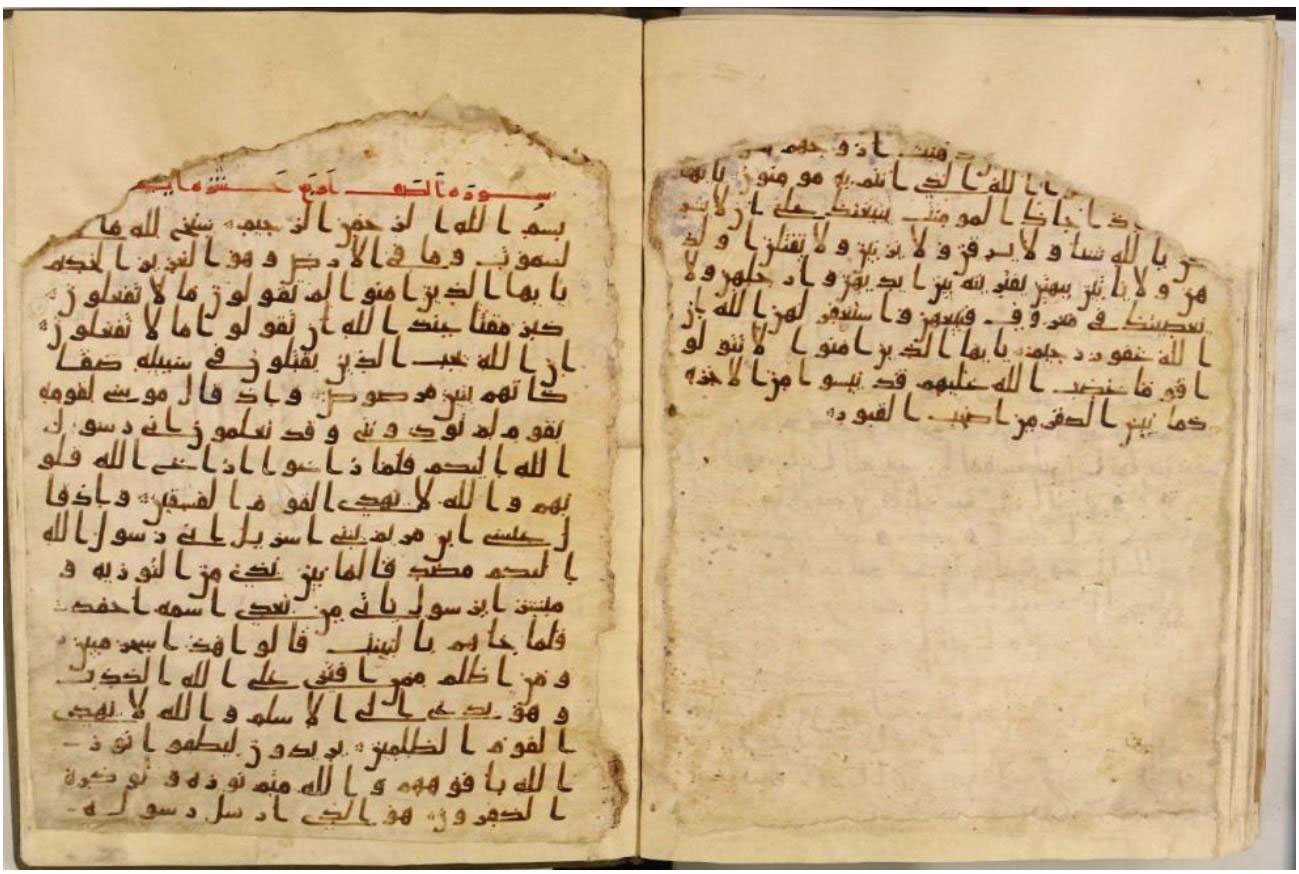 ازوجهم
ا الله الذي انتم به مومنون يايها
ذا جاك المومنت يبيعنك على ان لا يشر
بالله شيا ولا يسرقن ولا يزنين ولا يقتلن اولد
هن ولا ياتين ببهتن يفترينه بين ايديهن وارجلهن ولا
يعصينك في معروف فبيعهن واستغفر لهن الله ان
الله غفور رحيم يايها الذين امنوا لا تتولو
ا قوما غضب الله عليهم قد يئسوا من الاخره
كما يئس الكفر من اصحب القبور
سوره الصف اربع عشره ايه
بسم الله الرحمن الرحيم سبح لله ما
لسموت وما في الارض وهو العزيز الحكيم
يايها الذين امنوا لم تقولون ما لا تفعلون
كبر مقتا عند الله ان تقولوا ما لا تفعلون
ان الله يحب الذين يقتلون في سبيله صفا
كانهم بنين مرصوص واذ قال موسى لقومه
يقوم لم توذونني وقد تعلمون اني رسول
الله اليكم فلما زاغوا ازاغ الله قلو
بهم والله لا يهدي القوم الفسقين واذ قا
ل عيسى ابن مريم يبني اسريل اني رسول الله
اليكم مصدقا لما بين يدي من التوريه و
مبشرا برسول ياتي من بعدي اسمه احمد
فلما جاهم بالبينت قالوا هذا سحر مبين
ومن اظلم ممن افترى على الله الكذب
وهو يدعى الى الاسلم والله لا يهدي
القوم الظلمين يريدون ليطفوا نور
الله بافوههم والله متم نوره ولو كره
الكفرون هو الذي ارسل رسوله